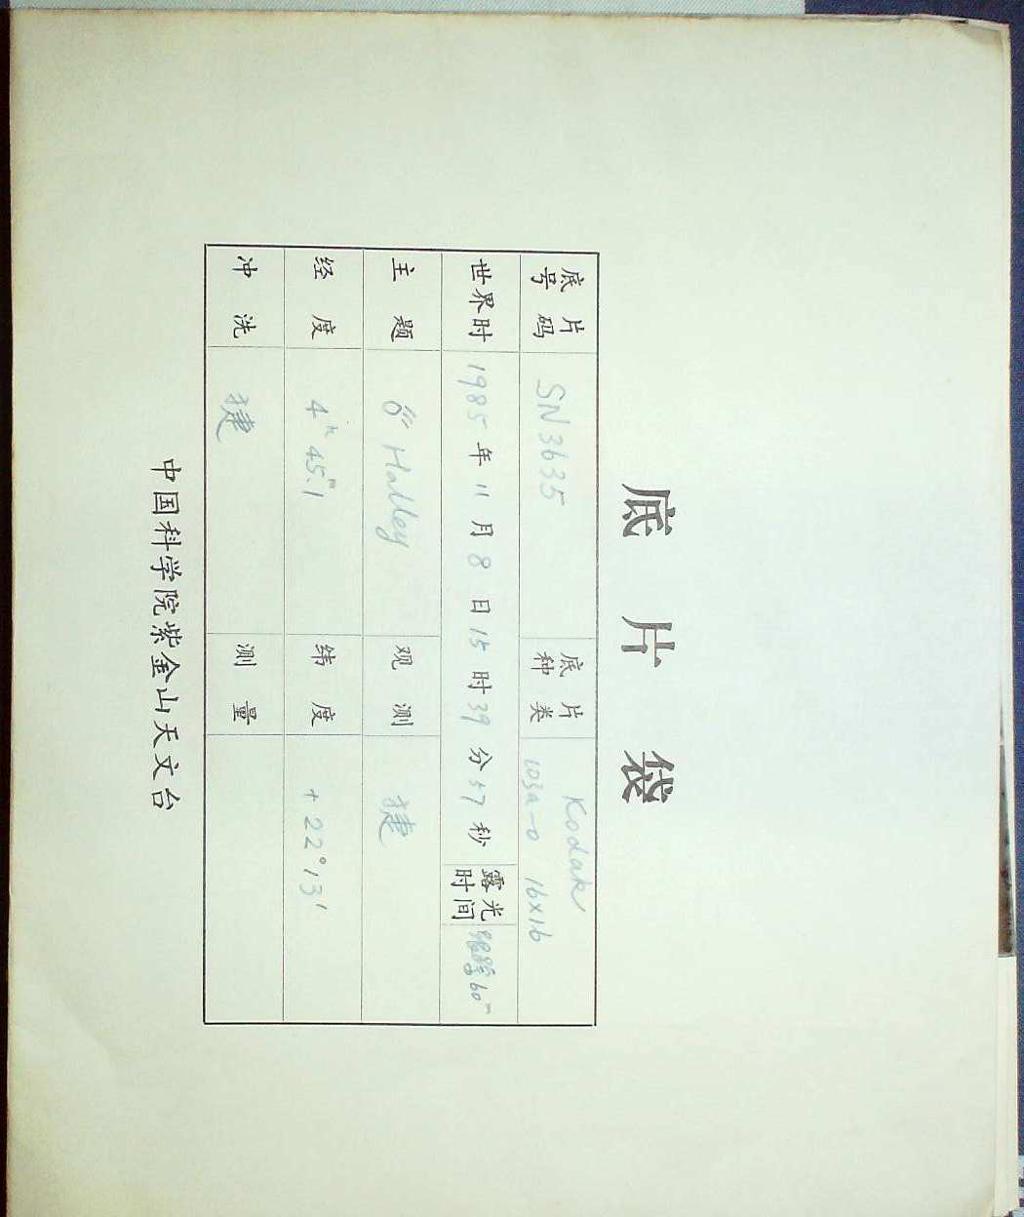 底片袋
底片号码 SN3635 底片种类 Kodak 103a-O 16×16
世界时 1985年11月8日15时39分57秒 露光时间 跟踪60ᵐ
主题 Halley 观测 捷
经度 4ʰ45ᵐ.1 纬度 +22°13′
冲洗 捷 测量
中国科学院紫金山天文台